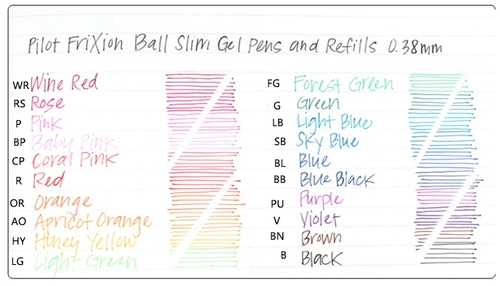 Pilot FriXion Ball Slim Gel Pens and Refills 0.38mm
WR Wine Red
RS Rose
P Pink
BP Baby Pink
CP Coral Pink
R Red
OR Orange
AO Apricot Orange
HY Honey Yellow
LG Light Green
FG Forest Green
G Green
LB Light Blue
SB Sky Blue
BL Blue
BB Blue Black
PU Purple
V Violet
BN Brown
B Black